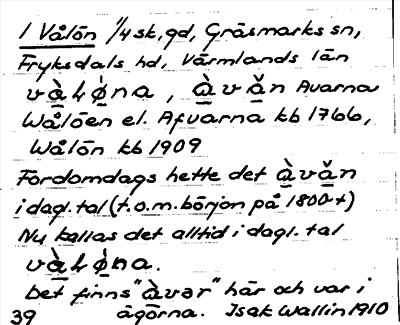 1 Vålön 1/4 sk, gd, Gräsmarks sn,
Fryksdals hd, Värmlands län
và̱ɬò̱na , à̱vǎ̱n Avarna
Wålöen el. Afvarna kb 1766,
Wålön kb 1909
Fordomdags hette det à̱vǎ̱n
i dagl. tal (t.o.m. början på 1800-t)
Nu kallas det alltid i dagl. tal
và̱ɬò̱na.
Det finns "à̱vər" här och var i
39 ägorna. Isak Wallin 1910